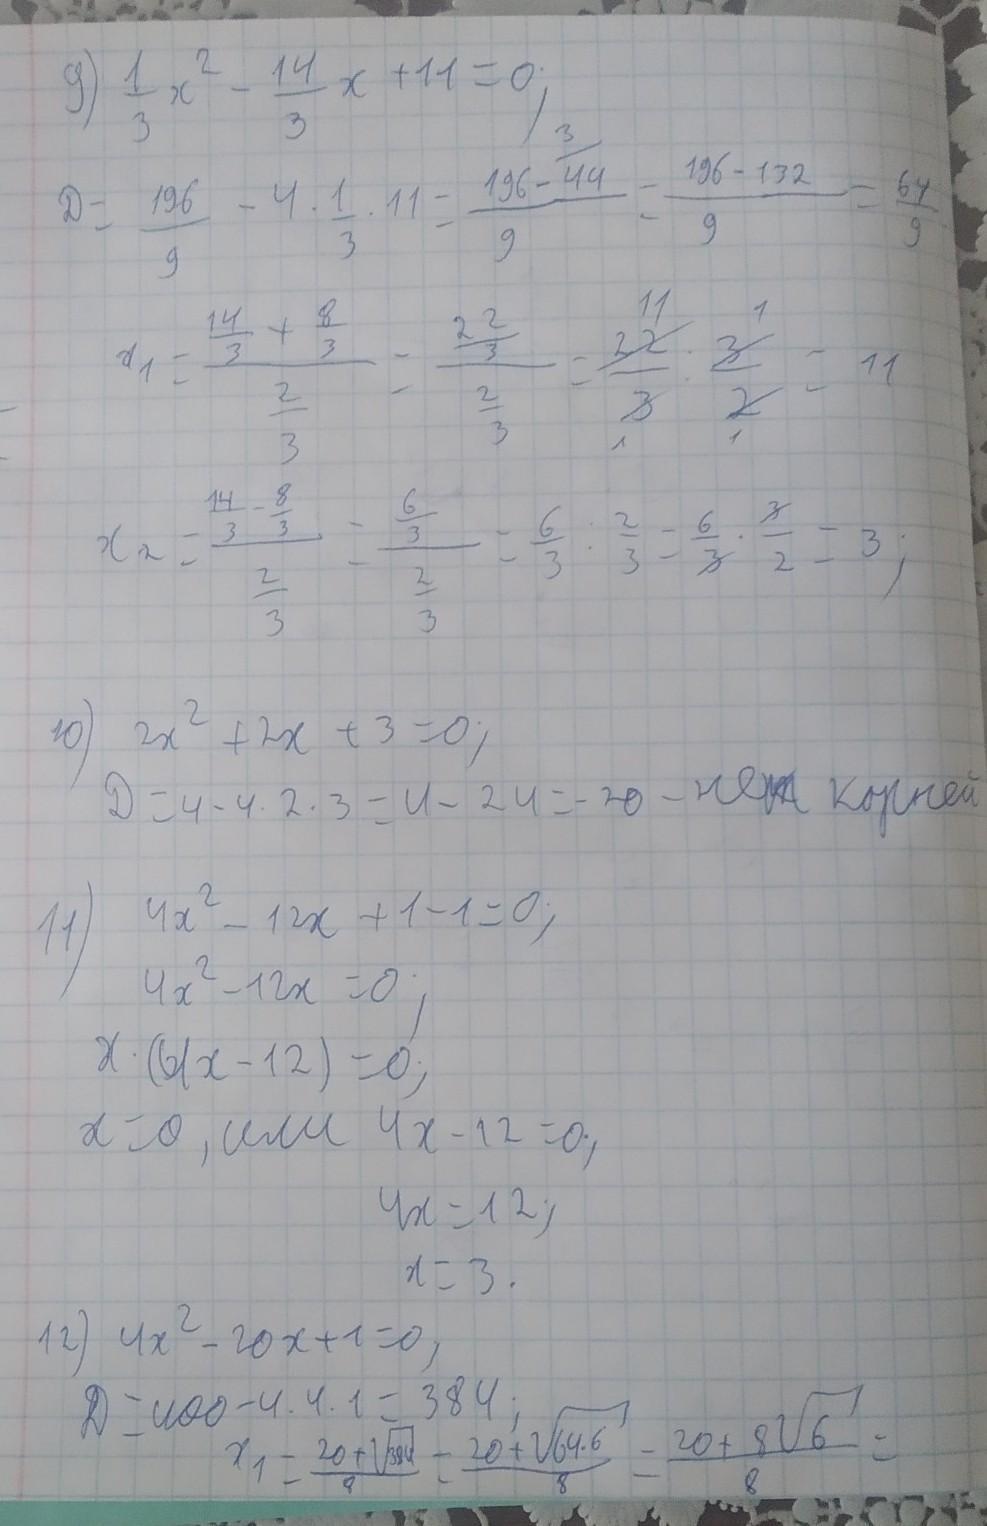 9) 1/3 x² - 14/3 x + 11 = 0;
D = 196/9 - 4 · 1/3 · 11 = (196 - 44 3/)/9 = (196 - 132)/9 = 64/9
x₁ = (14/3 + 8/3)/(2/3) = (22/3)/(2/3) = 22/3 · 3/2 = 11
x₂ = (14/3 - 8/3)/(2/3) = (6/3)/(2/3) = 6/3 : 2/3 = 6/3 · 3/2 = 3;
10) 2x² + 2x + 3 = 0;
D = 4 - 4 · 2 · 3 = 4 - 24 = -20 - нет корней
11) 4x² - 12x + 1 - 1 = 0;
4x² - 12x = 0;
x · (4x - 12) = 0;
x = 0, или 4x - 12 = 0;
4x = 12;
x = 3.
12) 4x² - 20x + 1 = 0;
D = 400 - 4 · 4 · 1 = 384;
x₁ = (20 + √384)/8 = (20 + √(64·6))/8 = (20 + 8√6)/8 =